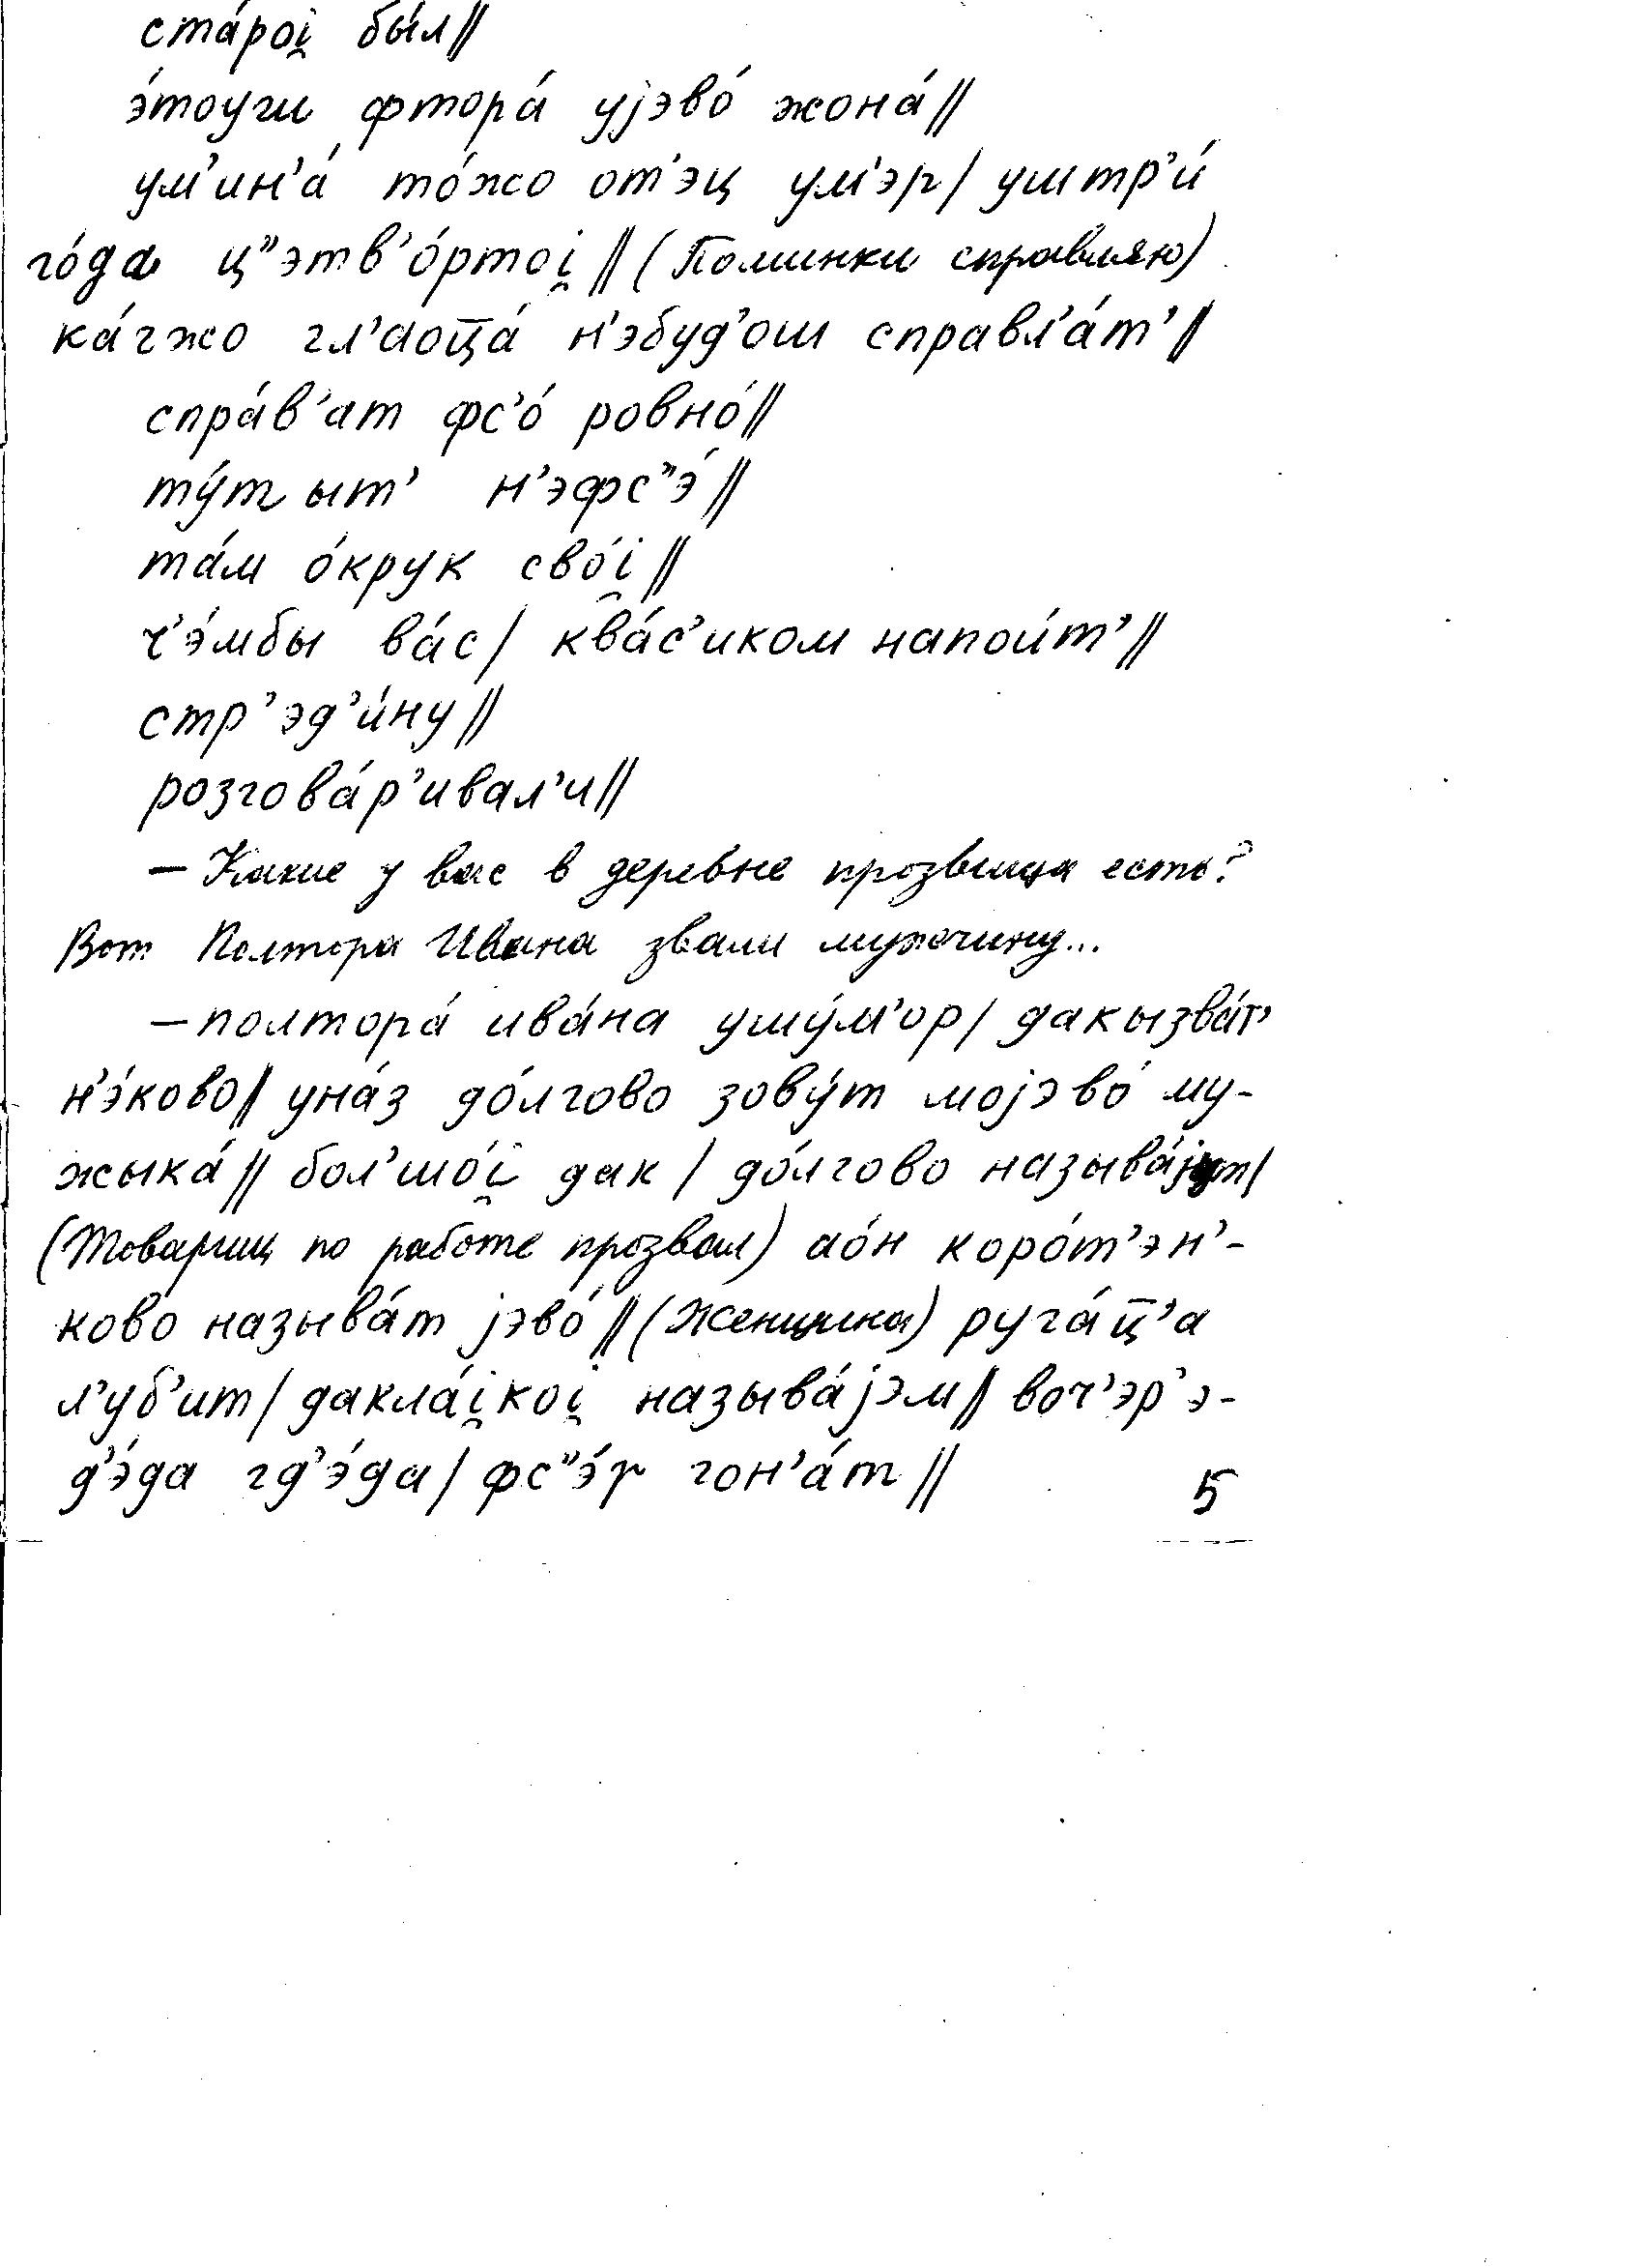 ста́роі̯ бы́л//
э́тоуги фтора́ уjэво́ жона́//
ум'ин'а́ то́жо от'эц ум'эр/ уштр'и́
го́да ц"этв'о́ртоі̯// (Поминки справляю)
ка́гжо гл'аоц̅а́ н'эбуд'ош справл'а́т'//
спра́в'ат фс'о́ ровно́//
ту́т ыт' н'эфс"э́//
та́м о́крук сво́і̯//
ч'э́мбы ва́с/ ква́с'иком напои́т'//
стр'эд'и́ну//
розгова́р'ивал'и//
– Какие у вас в деревне прозвища есть?
Вот Полтора Ивана звали мужчину...
– полтора́ ива́на ушу́м'ор/ дакызва́т'
н'э́ково// уна́з до́лгово зову́т моjэво́ му-
жыка́// бол'шо́і̯ дак / до́лгово называ́jут/
(Товарищ по работе прозвал) ао́н коро́т'эн'-
ково называ́т jэво́// (Женщина) руга́ц̅'а
л'уб'ит/ дакла́і̯коі̯ называ́jэм// воч'эр'э-
д'э́да гд'э́да/ фс"э́г гон'а́т//
5